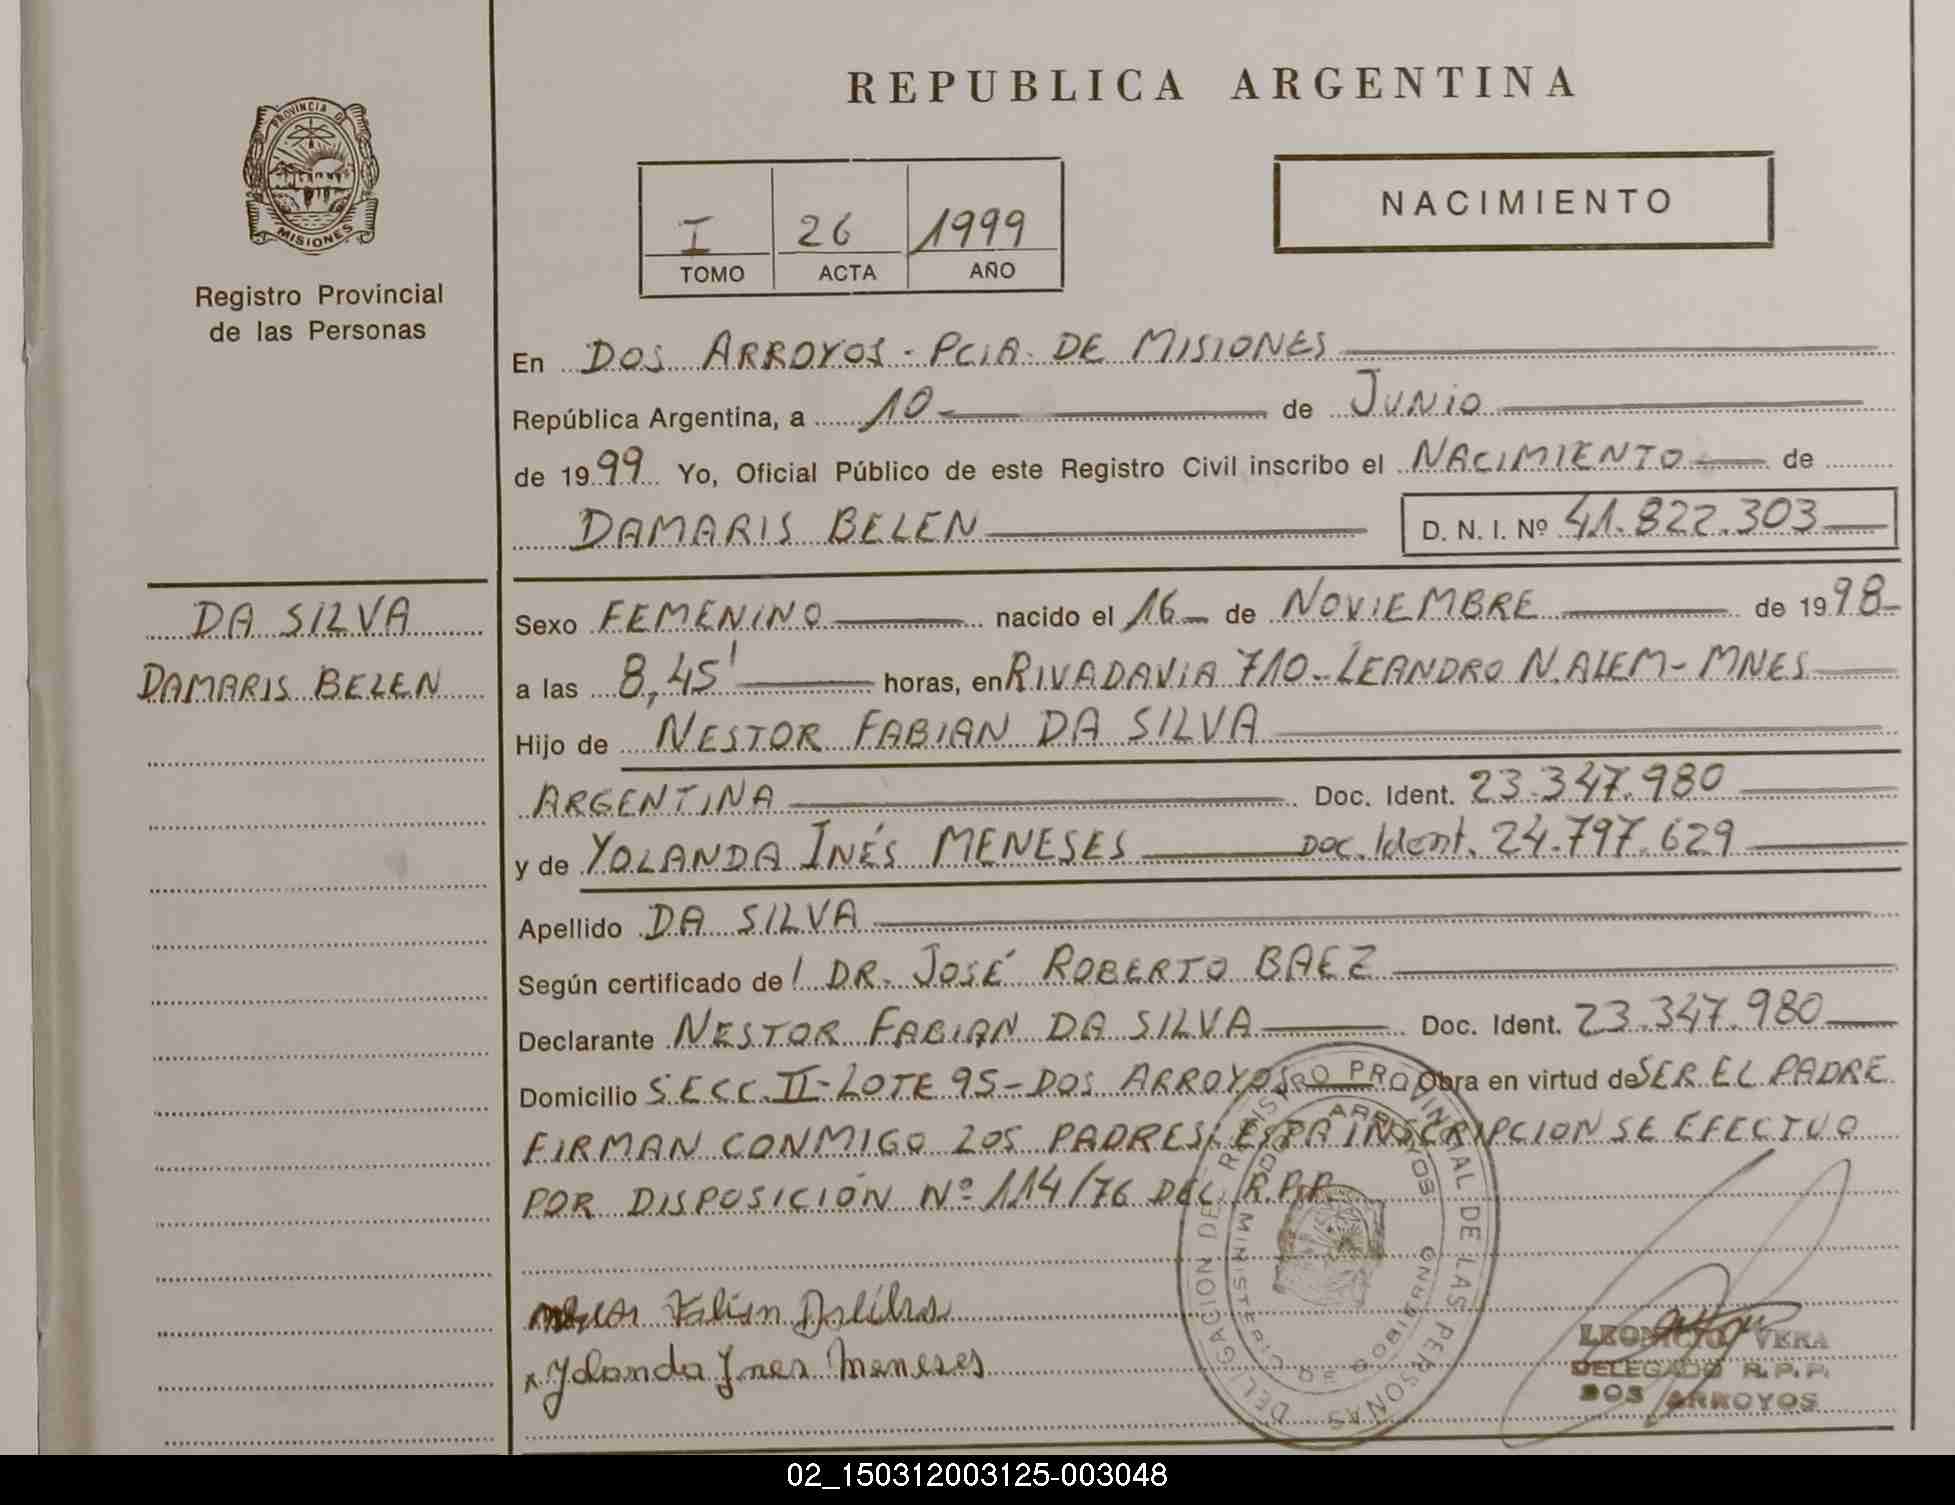 REPUBLICA ARGENTINA
PROVINCIA DE
MISIONES
Registro Provincial
de las Personas
I 26 1999
TOMO ACTA AÑO
NACIMIENTO
En DOS ARROYOS - PCIA. DE MISIONES
República Argentina, a 10 de JUNIO
de 1999 Yo, Oficial Público de este Registro Civil inscribo el NACIMIENTO de
DAMARIS BELEN D. N. I. Nº 41.822.303
DA SILVA
DAMARIS BELEN
Sexo FEMENINO nacido el 16 de NOVIEMBRE de 1998
a las 8,45' horas, en RIVADAVIA 710 - LEANDRO N. ALEM - MNES
Hijo de NESTOR FABIAN DA SILVA
ARGENTINA Doc. Ident. 23.347.980
y de YOLANDA INÉS MENESES Doc. Ident. 24.797.629
Apellido DA SILVA
Según certificado de DR. JOSÉ ROBERTO BAEZ
Declarante NESTOR FABIAN DA SILVA Doc. Ident. 23.347.980
Domicilio SECC. II - LOTE 95 - DOS ARROYOS Obra en virtud de SER EL PADRE
FIRMAN CONMIGO LOS PADRES; ESTA INSCRIPCION SE EFECTUO
POR DISPOSICIÓN Nº 114/76 DEL R.P.P.
DELEGACION DEL REGISTRO PROVINCIAL DE LAS PERSONAS
DOS ARROYOS
MINISTERIO DE GOBIERNO
Fabian Dasilva
x Yolanda Ines Meneses
LEONICIO VERA
DELEGADO R.P.P.
DOS ARROYOS
02_150312003125-003048